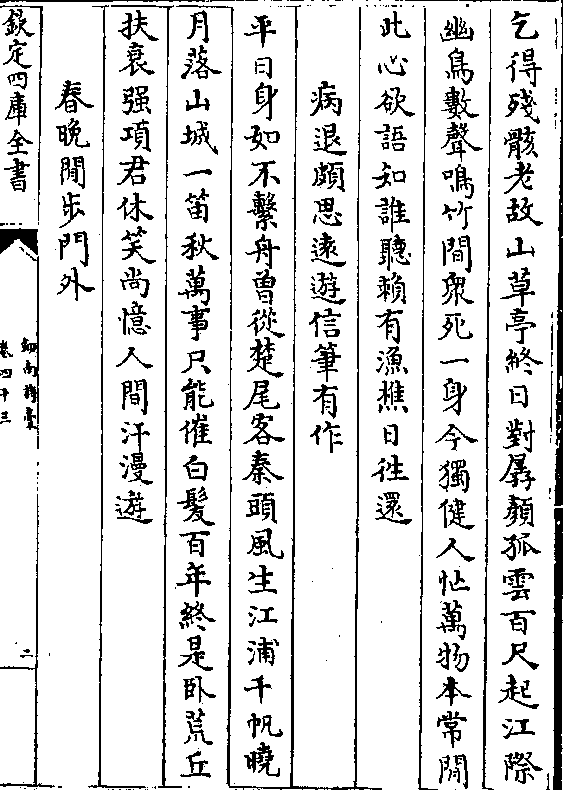 乞得殘骸老故山草亭終日對孱顔孤雲百尺起江際
幽鳥數聲鳴竹間衆死一身今獨健人忙萬物本常閒
此心欲語知誰聽賴有漁樵日徃還
病退頗思遠遊信筆有作
平日身如不繫舟曽從楚尾客秦頭風生江浦千帆曉
月落山城一笛秋萬事只能催白髮百年終是卧荒丘
扶衰强項君休笑尚憶人間汗漫遊
春晚閒步門外
欽定四庫全書
劍南詩稾
卷四十三
二